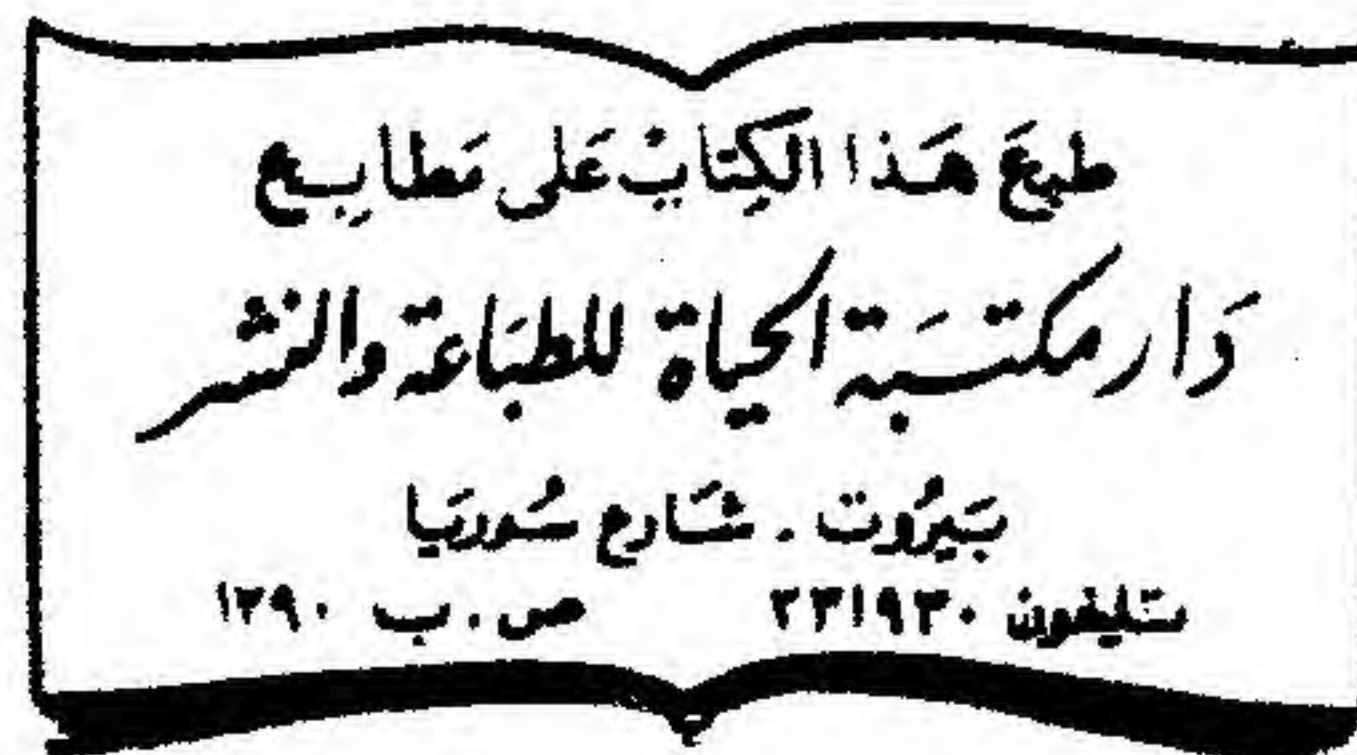 طبِعَ هَذا الكِتابُ عَلى مَطابِع
دَار مكتبَة الحياة للطبَاعة والنشر
بَيرُوت . شَارع سُوريَا
تليفون ٢٣١٩٣٠ ص . ب ١٣٩٠